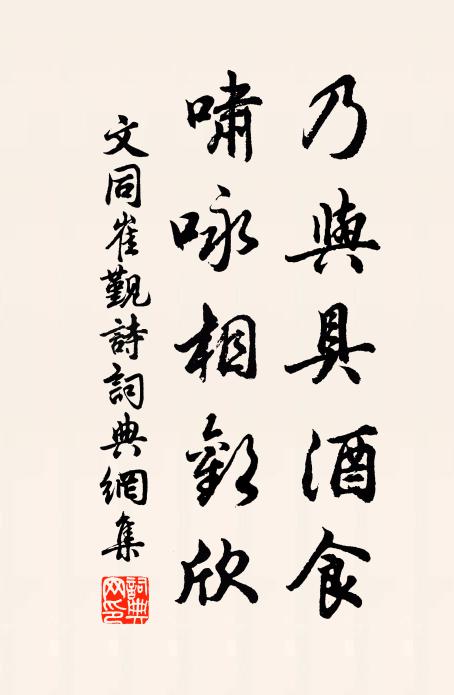 乃與具酒食
嘯咏相歡欣
文同崔觀詩詞典網集
詞典网印